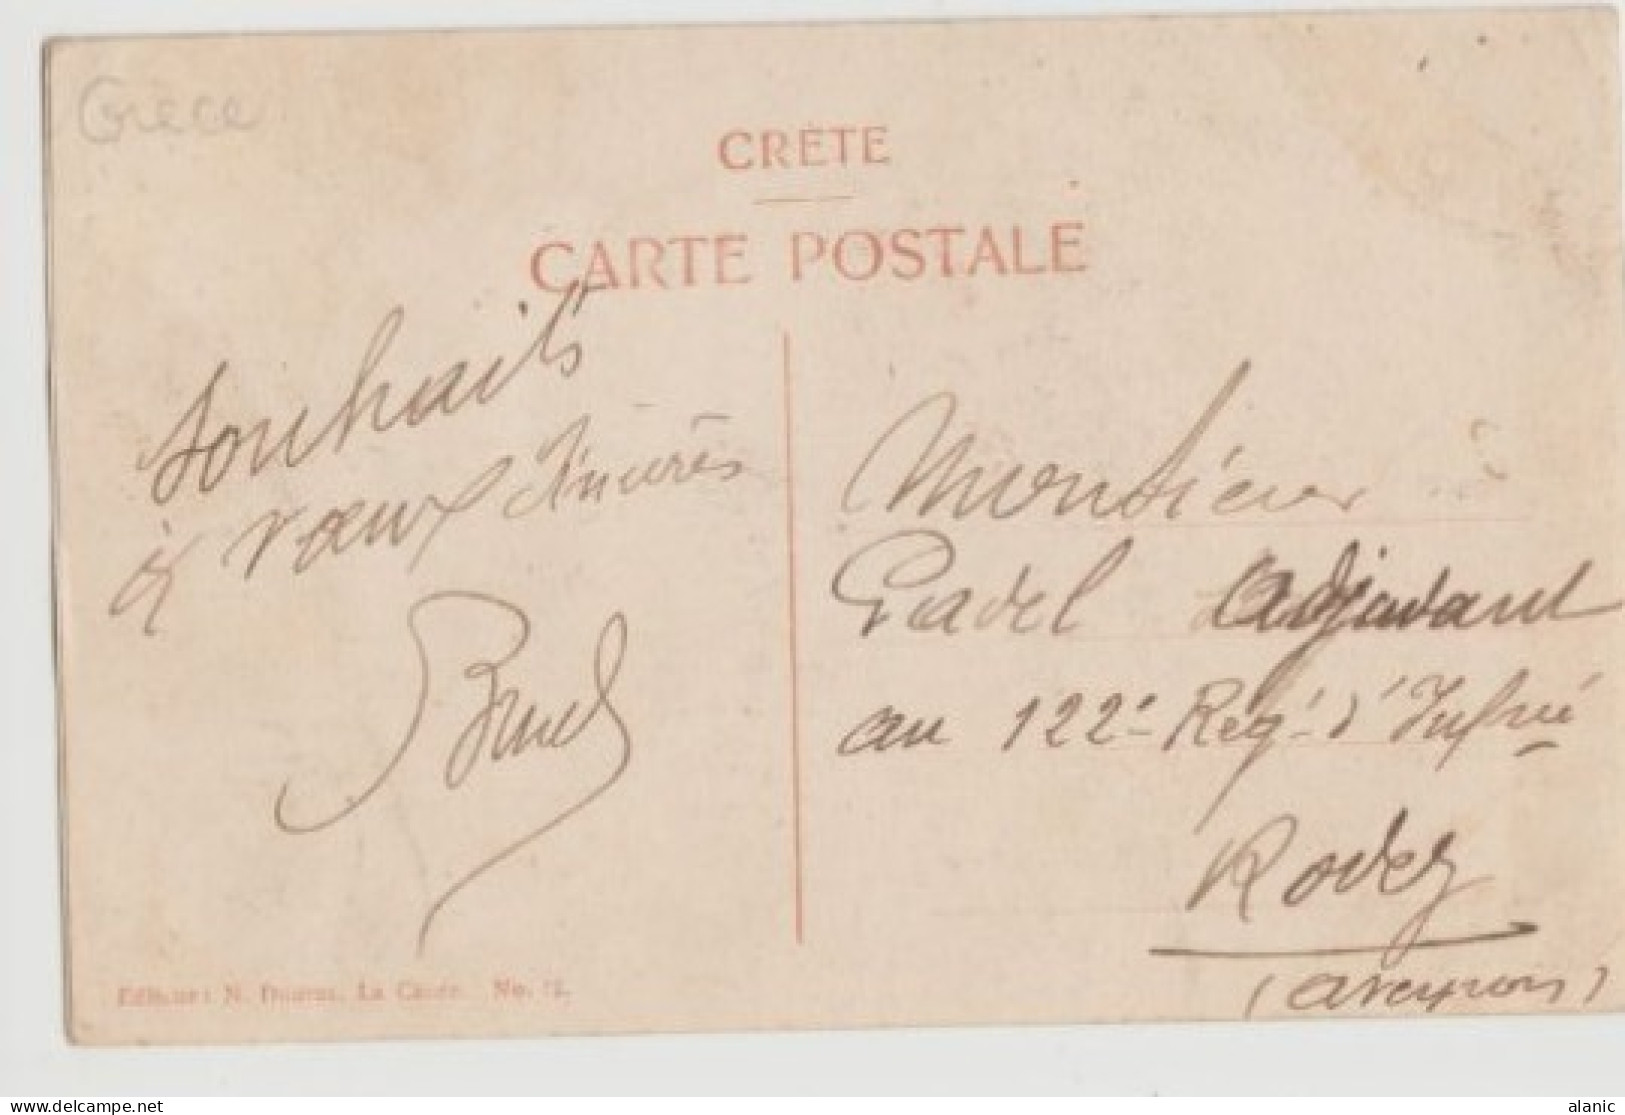 Grece
CRÈTE
CARTE POSTALE
Souhaits
& vœux sincères
Monsieur
Padel adjudant
au 122e Regt d'Infrie
Rodez
(Aveyron)
Editeur: N. La Canée. No. 12.
www.delcampe.net
alanic